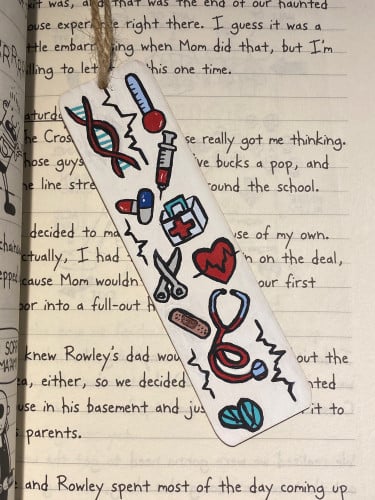 it was, and that was the end of our haunted
house experience right there. I guess it was a
little embarrassing when Mom did that, but I'm
willing to let this one time.
Saturday
The Cros se really got me thinking.
hose guys ve bucks a pop, and
e line stre round the school.
decided to ma se of my own.
ctually, I had n on the deal,
cause Mom wouldn our first
oor into a full-out h
knew Rowley's dad wou out the
ea, either, so we decided nted
use in his basement and jus it to
s parents.
e and Rowley spent most of the day coming up
SORR
MA'AM